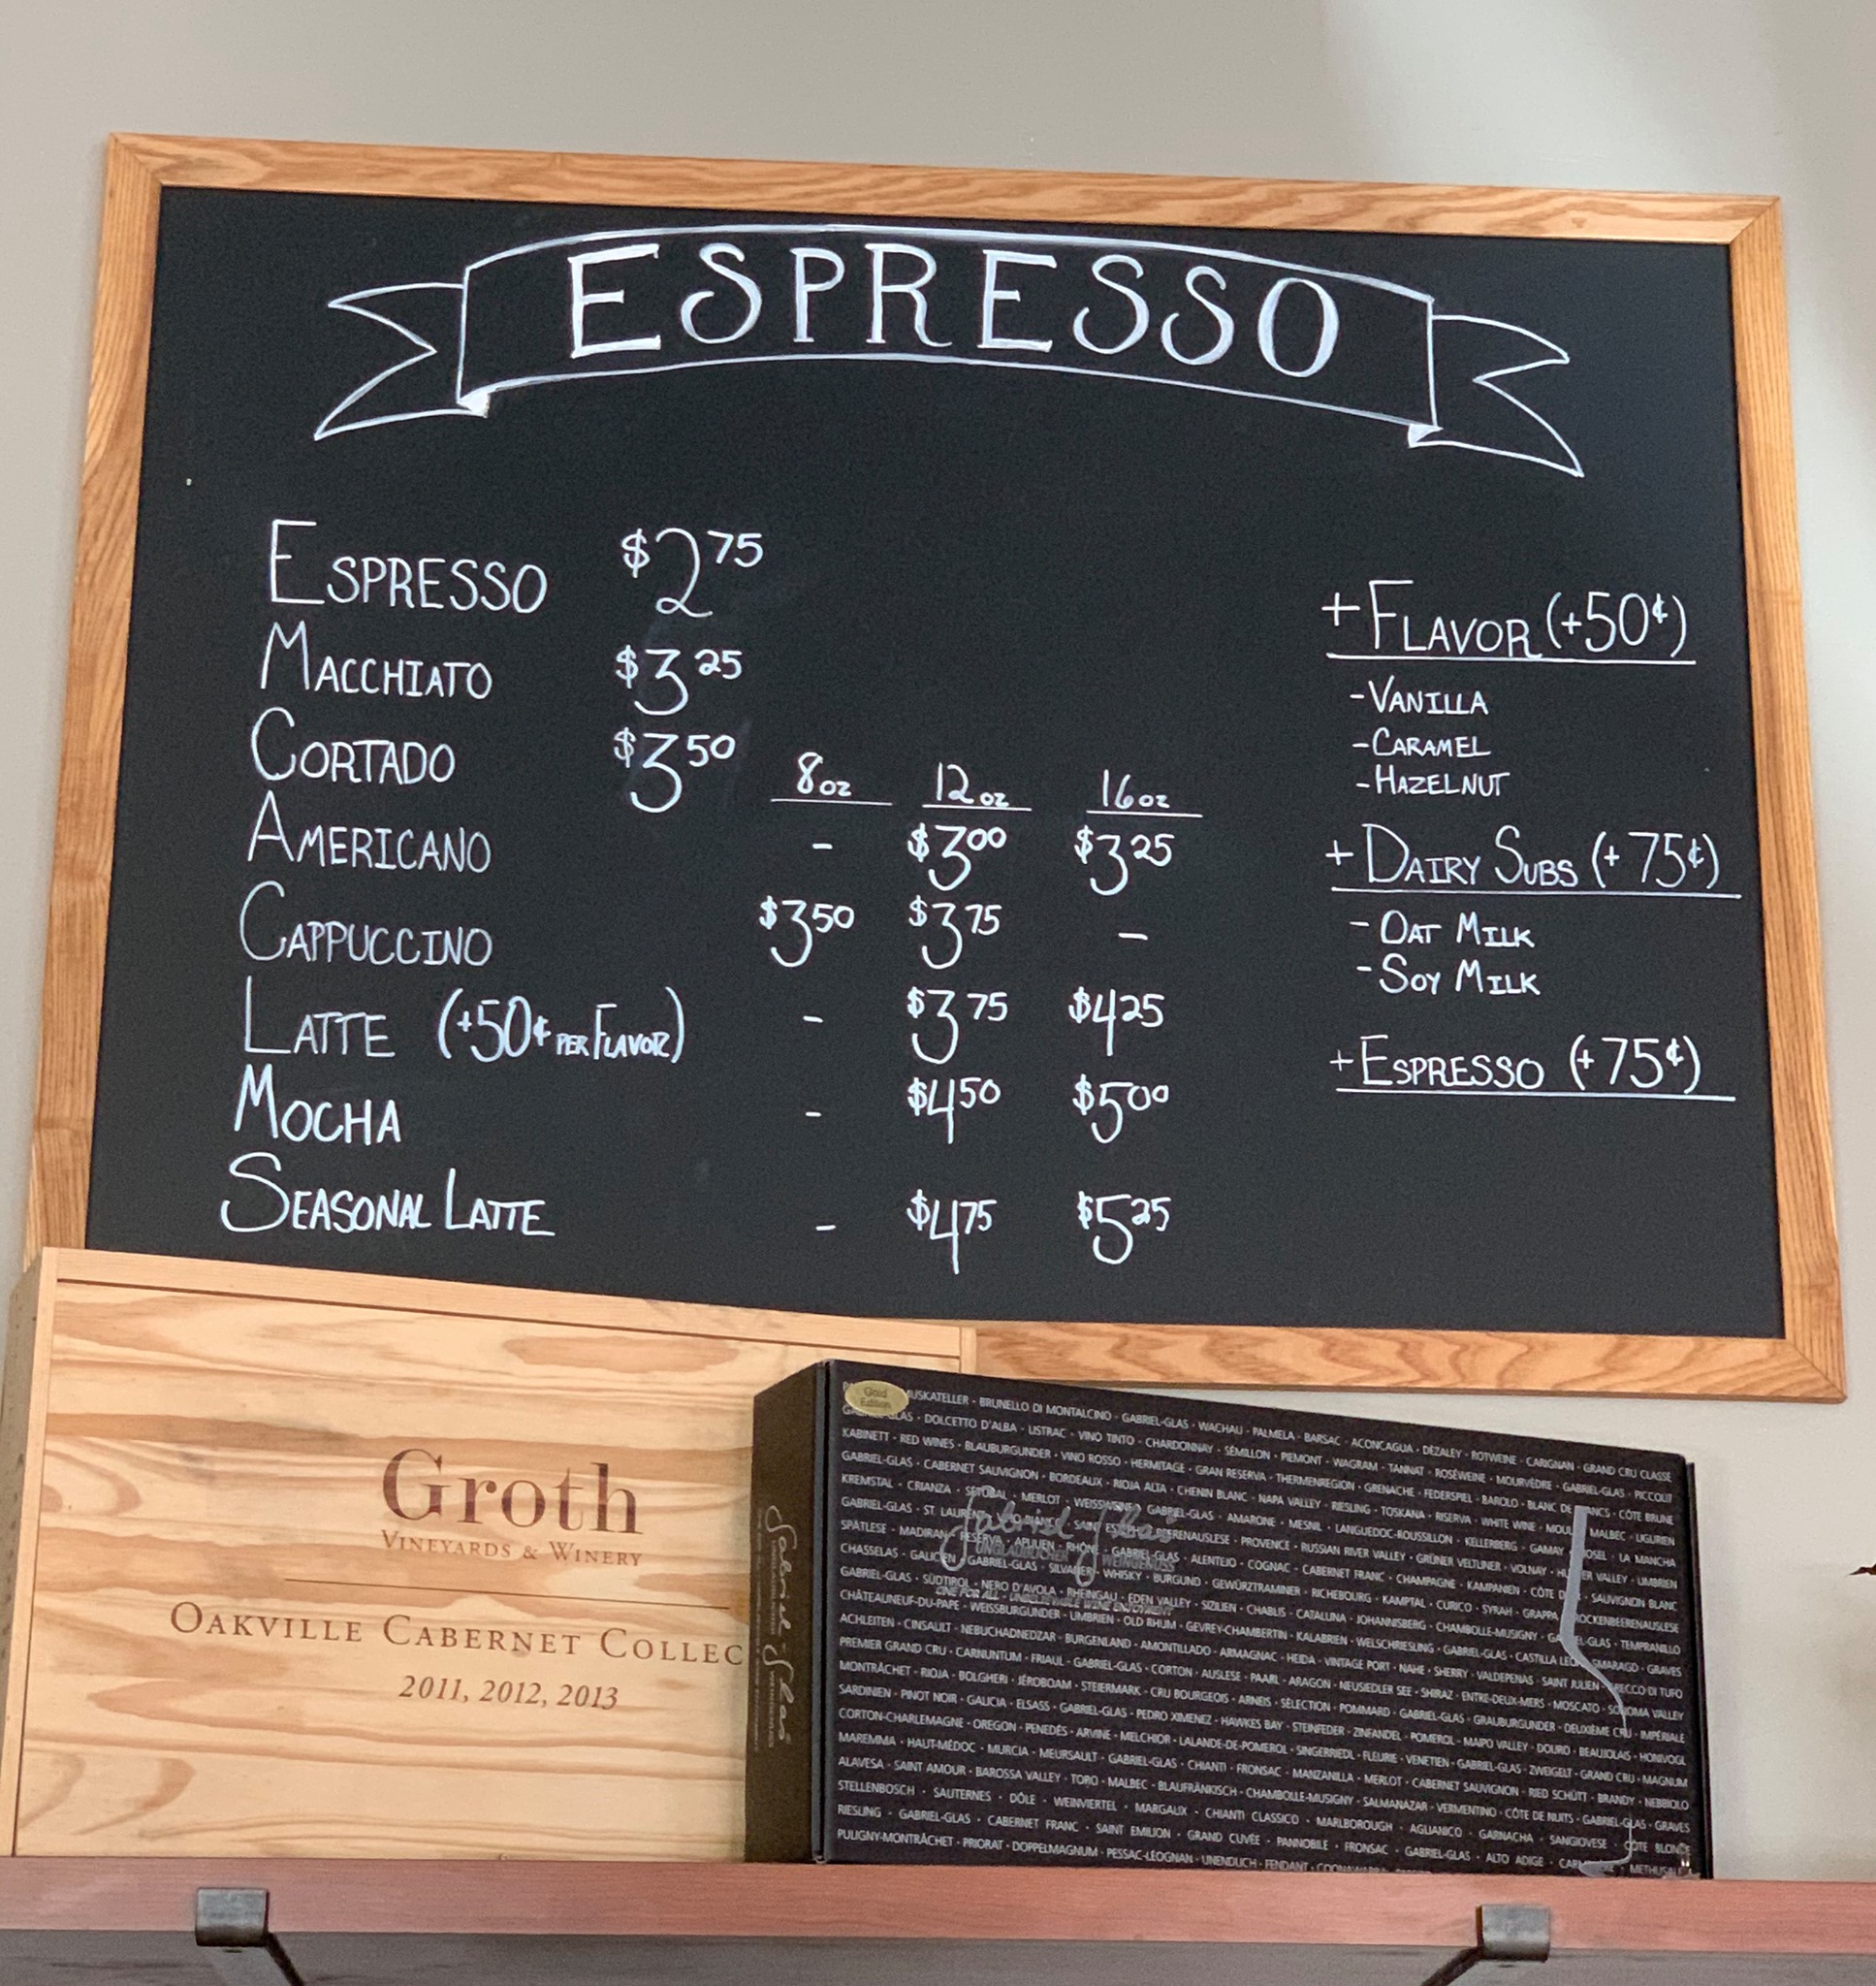 ESPRESSO
ESPRESSO $2 75
MACCHIATO $3 25
CORTADO $3 50
8oz 12oz 16oz
AMERICANO - $3 00 $3 25
CAPPUCCINO $3 50 $3 75 -
LATTE (+50¢ PER FLAVOR) - $3 75 $4 25
MOCHA - $4 50 $5 00
SEASONAL LATTE - $4 75 $5 25
+FLAVOR (+50¢)
-VANILLA
-CARAMEL
-HAZELNUT
+DAIRY SUBS (+75¢)
- OAT MILK
- SOY MILK
+ESPRESSO (+75¢)
Groth
VINEYARDS & WINERY
OAKVILLE CABERNET COLLEC
2011, 2012, 2013
Gold
Edition
Gabriel-Glas
MUSKATELLER · BRUNELLO DI MONTALCINO · GABRIEL-GLAS · WACHAU · PALMELA · BARSAC · ACONCAGUA · DÉZALEY · ROTWEINE · CARIGNAN · GRAND CRU CLASSÉ
GLAS · DOLCETTO D'ALBA · LISTRAC · VINO TINTO · CHARDONNAY · SÉMILLON · PIEMONT · WAGRAM · TANNAT · ROSÉWEINE · MOURVÈDRE · GABRIEL-GLAS · PICCOLIT
KABINETT · RED WINES · BLAUBURGUNDER · VINO ROSSO · HERMITAGE · GRAN RESERVA · THERMENREGION · GRENACHE · FEDERSPIEL · BAROLO · BLANC DE BLANCS · CÔTE BRUNE
GABRIEL-GLAS · CABERNET SAUVIGNON · BORDEAUX · RIOJA ALTA · CHENIN BLANC · NAPA VALLEY · RIESLING · TOSKANA · RISERVA · WHITE WINE · MALBEC · LIGURIEN
KREMSTAL · CRIANZA · SETÚBAL · MERLOT · WEISSWEINE · GABRIEL-GLAS · AMARONE · MESNIL · LANGUEDOC-ROUSSILLON · KELLERBERG · GAMAY · MOSEL · LA MANCHA
GABRIEL-GLAS · ST. LAURENT · PROVENCE · RUSSIAN RIVER VALLEY · GRÜNER VELTLINER · VOLNAY · HUNTER VALLEY · UMBRIEN
SPÄTLESE · MADIRAN · RESERVA · APULIEN · RHÔNE · GABRIEL-GLAS · ALENTEJO · COGNAC · CABERNET FRANC · CHAMPAGNE · KAMPANIEN · SAUVIGNON BLANC
CHASSELAS · GALICIEN · GABRIEL-GLAS · SILVANER · WHISKY · BURGUND · GEWÜRZTRAMINER · RICHEBOURG · KAMPTAL · CURICO · SYRAH · GRAPPA · TROCKENBEERENAUSLESE
GABRIEL-GLAS · SÜDTIROL · NERO D'AVOLA · RHEINGAU · EDEN VALLEY · SIZILIEN · CHABLIS · CATALUNA · JOHANNISBERG · CHAMBOLLE-MUSIGNY · GABRIEL-GLAS · TEMPRANILLO
CHÂTEAUNEUF-DU-PAPE · WEISSBURGUNDER · UMBRIEN · OLD RHUM · GEVREY-CHAMBERTIN · KALABRIEN · WELSCHRIESLING · GABRIEL-GLAS · CASTILLA LEON · SMARAGD · GRAVES
ACHLEITEN · CINSAULT · NEBUCHADNEDZAR · BURGENLAND · AMONTILLADO · ARMAGNAC · HEIDA · VINTAGE PORT · NAHE · SHERRY · VALDEPENAS · SAINT JULIEN · GRECCO DI TUFO
PREMIER GRAND CRU · CARNUNTUM · FRIAUL · GABRIEL-GLAS · CORTON · AUSLESE · PAARL · ARAGON · NEUSIEDLER SEE · SHIRAZ · ENTRE-DEUX-MERS · MOSCATO · SONOMA VALLEY
MONTRÂCHET · RIOJA · BOLGHERI · JÉROBOAM · STEIERMARK · CRU BOURGEOIS · ARNEIS · SÉLECTION · POMMARD · GABRIEL-GLAS · GRAUBURGUNDER · DEUXIÈME CRU · IMPÉRIALE
SARDINIEN · PINOT NOIR · GALICIA · ELSASS · GABRIEL-GLAS · PEDRO XIMENEZ · HAWKES BAY · STEINFEDER · ZINFANDEL · POMEROL · MAIPO VALLEY · DOURO · BEAUJOLAIS · HONIVOGL
CORTON-CHARLEMAGNE · OREGON · PENEDÈS · ARVINE · MELCHIOR · LALANDE-DE-POMEROL · SINGERRIEDL · FLEURIE · VENETIEN · GABRIEL-GLAS · ZWEIGELT · GRAND CRU · MAGNUM
MAREMMA · HAUT-MÉDOC · MURCIA · MEURSAULT · GABRIEL-GLAS · CHIANTI · FRONSAC · MANZANILLA · MERLOT · CABERNET SAUVIGNON · RIED SCHÜTT · BRANDY · NEBBIOLO
ALAVESA · SAINT AMOUR · BAROSSA VALLEY · TORO · MALBEC · BLAUFRÄNKISCH · CHAMBOLLE-MUSIGNY · SALMANAZAR · VERMENTINO · CÔTE DE NUITS · GABRIEL-GLAS · GRAVES
STELLENBOSCH · SAUTERNES · DÔLE · WEINVIERTEL · MARGAUX · CHIANTI CLASSICO · MARLBOROUGH · AGLIANICO · GARNACHA · SANGIOVESE · CÔTE BLONDE
RIESLING · GABRIEL-GLAS · CABERNET FRANC · SAINT EMILION · GRAND CUVÉE · PANNOBILE · FRONSAC · GABRIEL-GLAS · ALTO ADIGE
PULIGNY-MONTRÂCHET · PRIORAT · DOPPELMAGNUM · PESSAC-LÉOGNAN · UNENDLICH · FENDANT
Gabriel-Glas
ONE FOR ALL - UNBELIEVABLE WINE ENJOYMENT